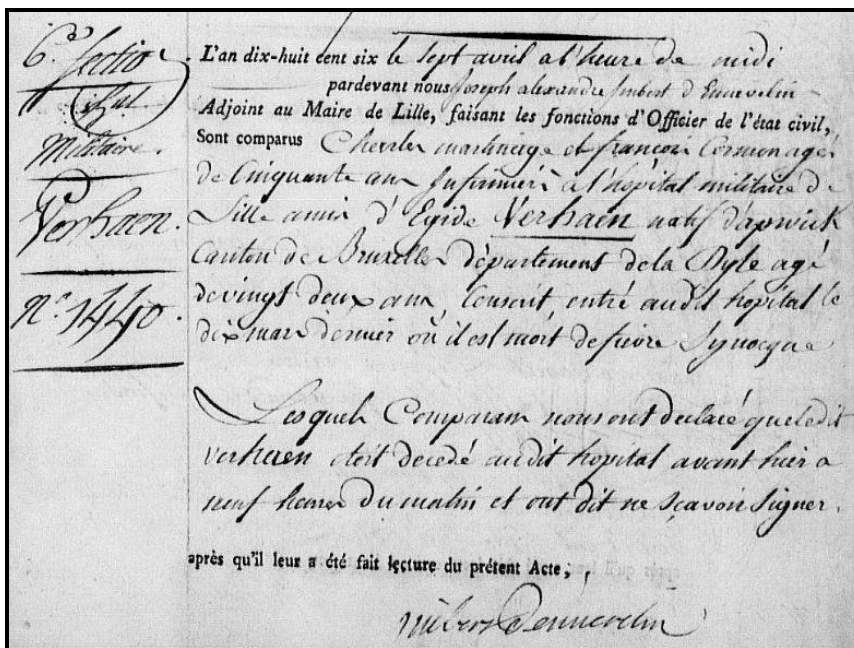 6e Sectio
Militaire.
Verhaen.
n° 1440.
L'an dix-huit cent six le sept avril a l'heure de midi
pardevant nous Joseph alexandre Imbert d'Ennevelin
Adjoint au Maire de Lille, faisant les fonctions d'Officier de l'état civil,
Sont comparus Charles et françois agés
de Cinquante ans Infirmiers à l'hôpital militaire de
Lille amis d'Egide Verhaen natif d'apwick
Canton de Bruxelles département de la Dyle agé
de vingt deux ans Conscrit, entré audit hopital le
dix mars dernier où il est mort de fievre Synocque
Lesquels Comparans nous ont declaré que ledit
verhaen etoit decedé audit hopital avant hier a
neuf heures du matin et ont dit ne sçavoir signer.
après qu'il leur a été fait lecture du présent Acte,
imbert Dennevelin